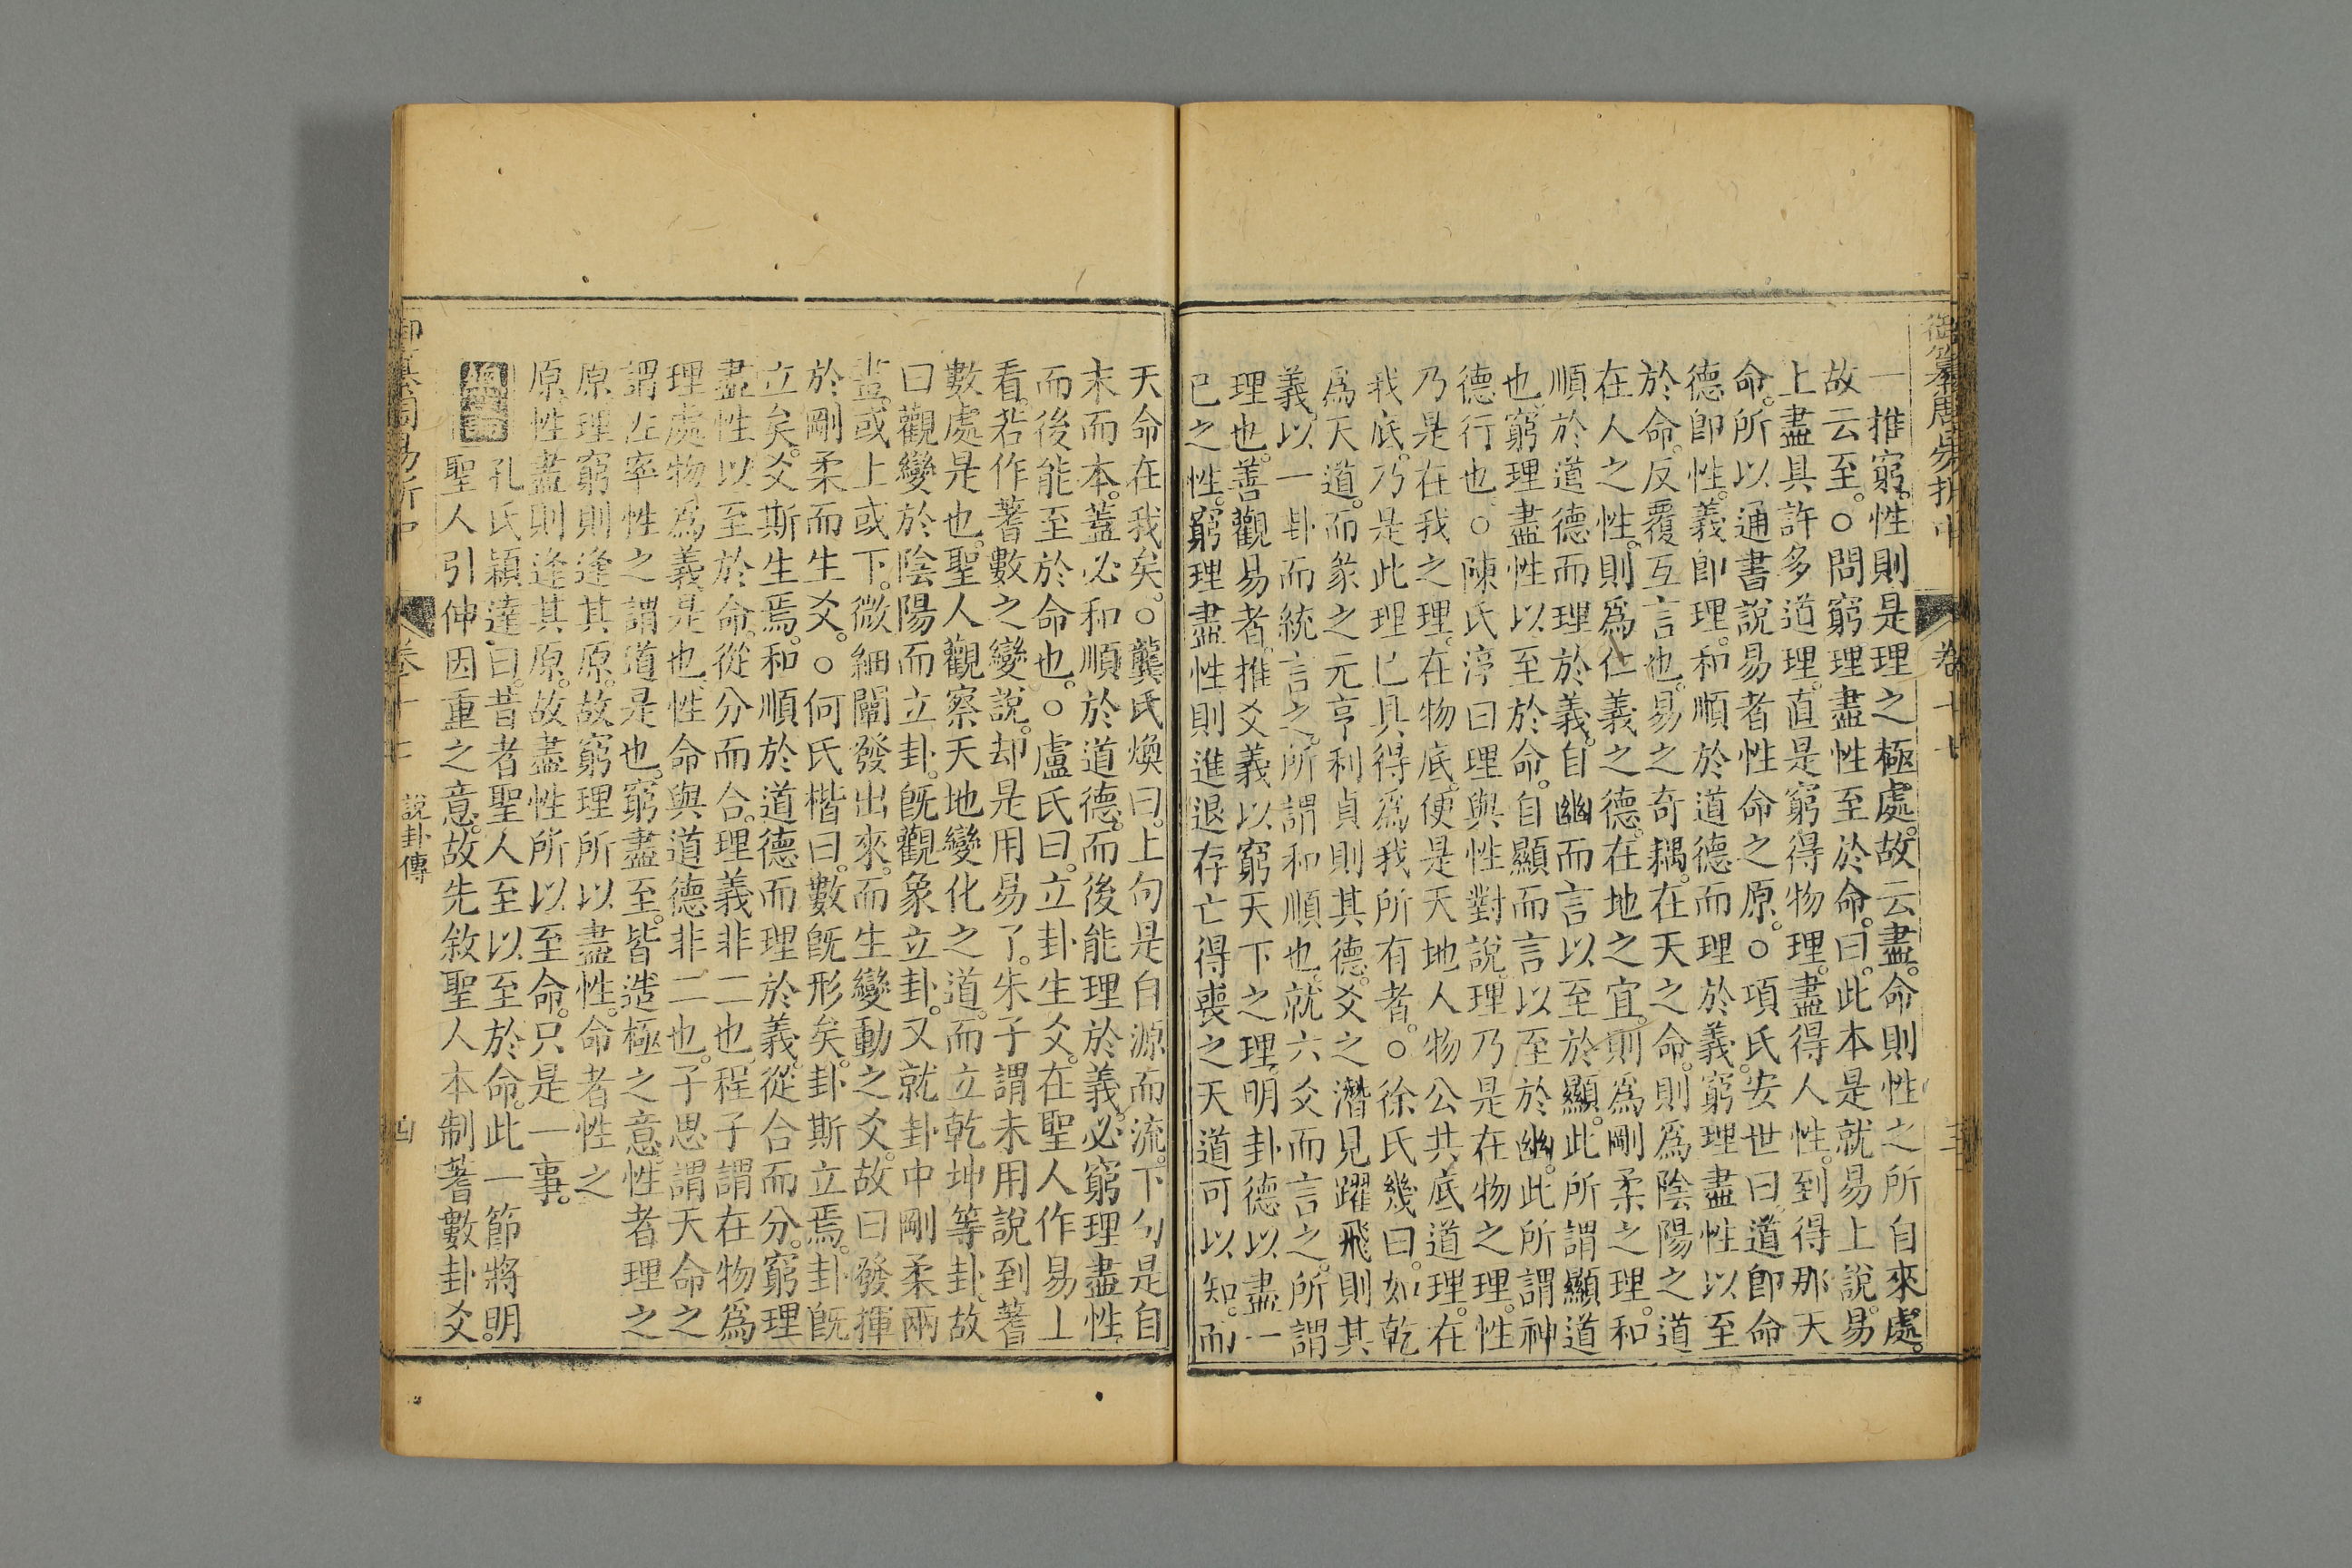 御纂周易折中
卷十七
三
一推窮。性則是理之極處。故云盡。命則性之所自來處。
故云至。○問窮理盡性至於命。曰。此本是就易上說。易
上盡具許多道理。直是窮得物理。盡得人性。到得那天
命。所以通書說易者性命之原。○項氏安世曰。道即命
德即性。義即理。和順於道德而理於義。窮理盡性以至
於命。反覆互言也。易之奇耦。在天之命。則爲陰陽之道
在人之性。則爲仁義之德。在地之宜。則爲剛柔之理。和
順於道德而理於義。自幽而言以至於顯。此所謂顯道
也。窮理盡性以至於命。自顯而言以至於幽。此所謂神
德行也。○陳氏淳曰理與性對說。理乃是在物之理。性
乃是在我之理。在物底。便是天地人物公共底道理。在
我底。乃是此理已具得爲我所有者。○徐氏幾曰。如乾
爲天道。而彖之元亨利貞則其德。爻之潛見躍飛則其
義。以一卦而統言之。所謂和順也。就六爻而言之。所謂
理也。善觀易者。推爻義以窮天下之理。明卦德以盡一
已之性。窮理盡性則進退存亡得喪之天道可以知。而
天命在我矣。○龔氏煥曰。上句是自源而流。下句是自
末而本。蓋必和順於道德。而後能理於義。必窮理盡性。
而後能至於命也。○盧氏曰。立卦生爻。在聖人作易上
看。若作蓍數之變說。却是用易了。朱子謂未用說到蓍
數處是也。聖人觀察天地變化之道。而立乾坤等卦。故
曰觀變於陰陽而立卦。旣觀象立卦。又就卦中剛柔兩
畫。或上或下。微細闡發出來。而生變動之爻。故曰發揮
於剛柔而生爻。○何氏楷曰。數旣形矣。卦斯立焉。卦旣
立矣。爻斯生焉。和順於道德而理於義。從合而分。窮理
盡性以至於命。從分而合。理義非二也。程子謂在物爲
理處物爲義是也。性命與道德非二也。子思謂天命之
謂性率性之謂道是也。窮盡至。皆造極之意。性者理之
原。理窮則逢其原。故窮理所以盡性。命者性之
原。性盡則逢其原。故盡性所以至命。只是一事。
孔氏穎達曰。昔者聖人至以至於命。此一節將明
聖人引伸因重之意。故先敘聖人本制蓍數卦爻。
御纂周易折中
卷十七
說卦傳
四